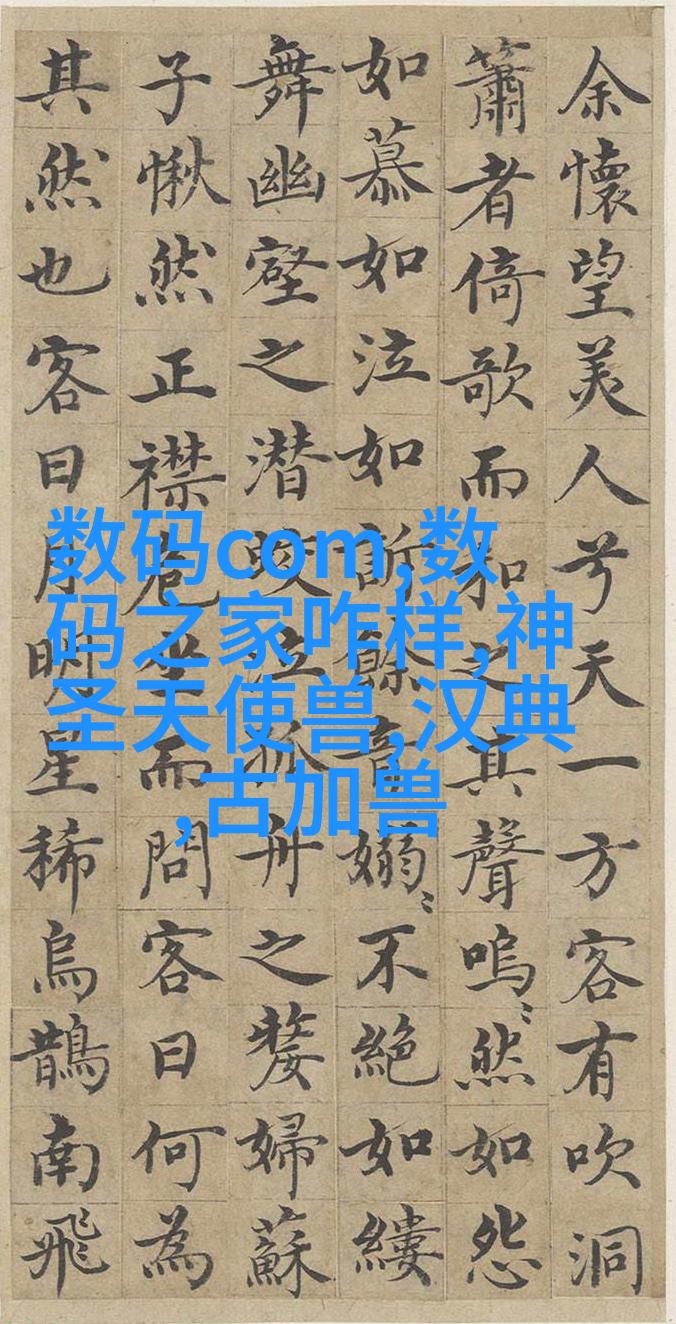 余懷望美人兮天一方客有吹洞
簫者倚歌而和之其聲嗚〻然如怨
如慕如泣如訴餘音嫋〻不絕如縷
舞幽壑之潜蛟泣孤舟之嫠婦蘇
子愀然正襟危坐而問客曰何為
其然也客曰月明星稀烏鵲南飛
数码com,数
码之家咋样,神
圣天使兽,汉典
,古加兽